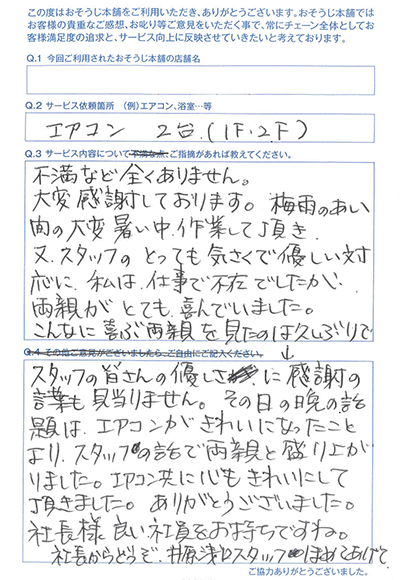 この度はおそうじ本舗をご利用いただき、ありがとうございます。おそうじ本舗では
お客様の貴重なご感想、お叱り等ご意見をいただく事で、常にチェーン全体としてお
客様満足度の追求と、サービス向上に反映させていきたいと考えております。
Q.1 今回ご利用されたおそうじ本舗の店舗名
Q.2 サービス依頼箇所 (例)エアコン、浴室…等
エアコン 2台.(1F.2F)
Q.3 サービス内容について不満な点、ご指摘があれば教えてください。
不満など全くありません。
大変感謝しております。梅雨のあい
間の大変暑い中.作業して頂き
又.スタッフのとっても気さくで優しい対
応に.私は.仕事で不在でしたが.
両親がとても.喜んでいました。
こんなに喜ぶ両親を見たのは久しぶりで
Q.4 その他ご意見がございましたら、ご自由にご記入ください。
スタッフの皆さんの優しさに感謝の
言葉も見当りません。その日の晩の話
題は.エアコンがきれいになったこと
より.スタッフの話で両親と盛り上が
りました。エアコン共に心もきれいにして
頂きました。ありがとうございました。
社長様良い社員をお持ちですね。
社長からどうぞ.スタッフほめてあげて
ご協力ありがとうございました。